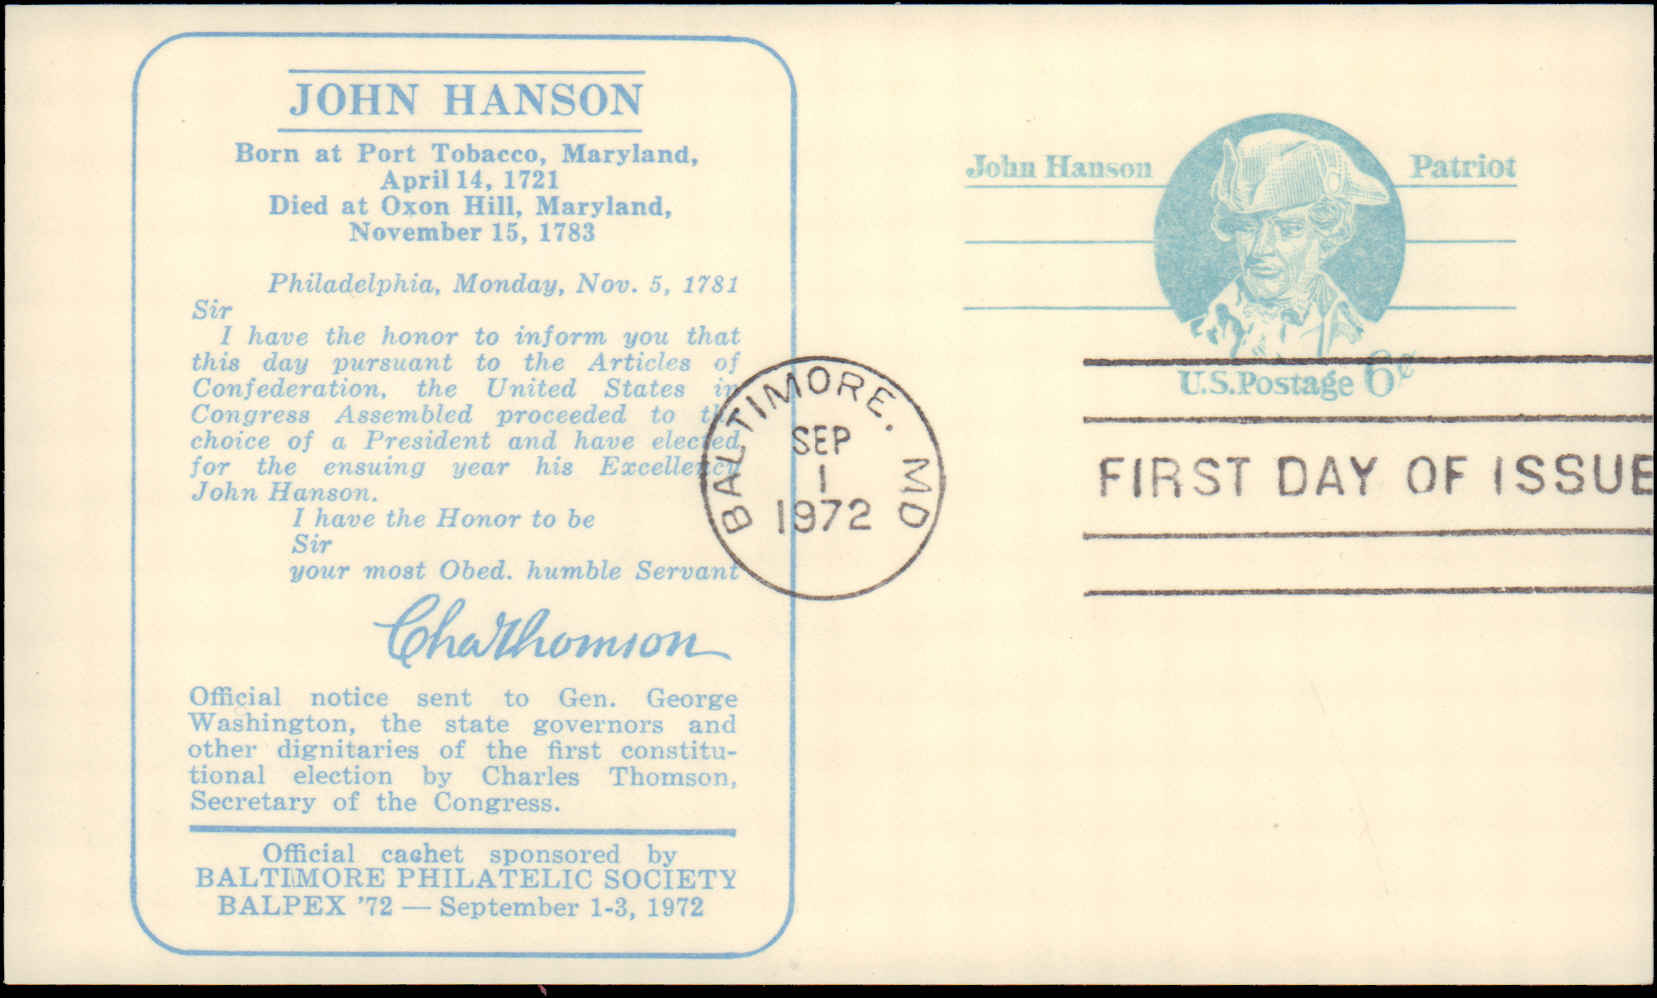 JOHN HANSON
Born at Port Tobacco, Maryland,
April 14, 1721
Died at Oxon Hill, Maryland,
November 15, 1783
Philadelphia, Monday, Nov. 5, 1781
Sir
I have the honor to inform you that
this day pursuant to the Articles of
Confederation, the United States in
Congress Assembled proceeded to the
choice of a President and have elected
for the ensuing year his Excellency
John Hanson.
I have the Honor to be
Sir
your most Obed. humble Servant
Cha Thomson
Official notice sent to Gen. George
Washington, the state governors and
other dignitaries of the first constitu-
tional election by Charles Thomson,
Secretary of the Congress.
Official cachet sponsored by
BALTIMORE PHILATELIC SOCIETY
BALPEX '72 — September 1-3, 1972
BALTIMORE, MD
SEP
1
1972
John Hanson Patriot
U.S. Postage 6¢
FIRST DAY OF ISSUE